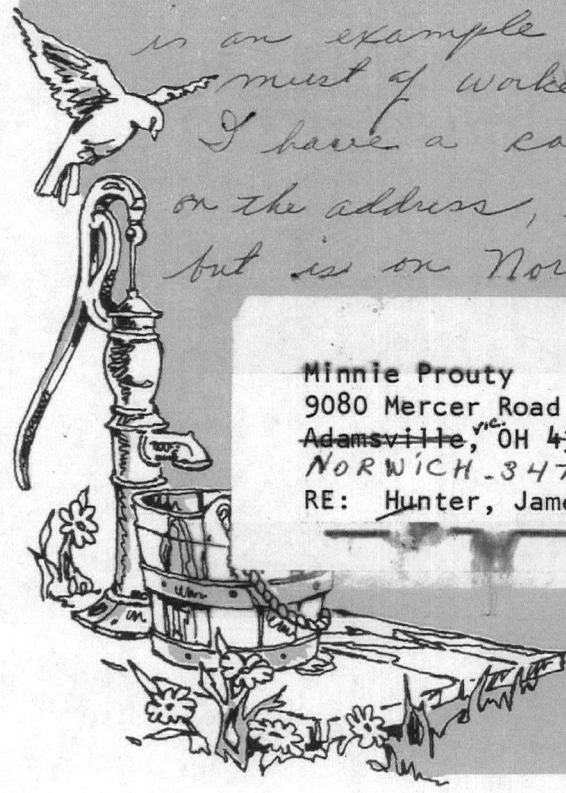 is an example
must of worke
I have a ca
on the address,
but is on Nor
Minnie Prouty
9080 Mercer Road
Adamsville, vic. OH 43
NORWICH - 347
RE: Hunter, Jame